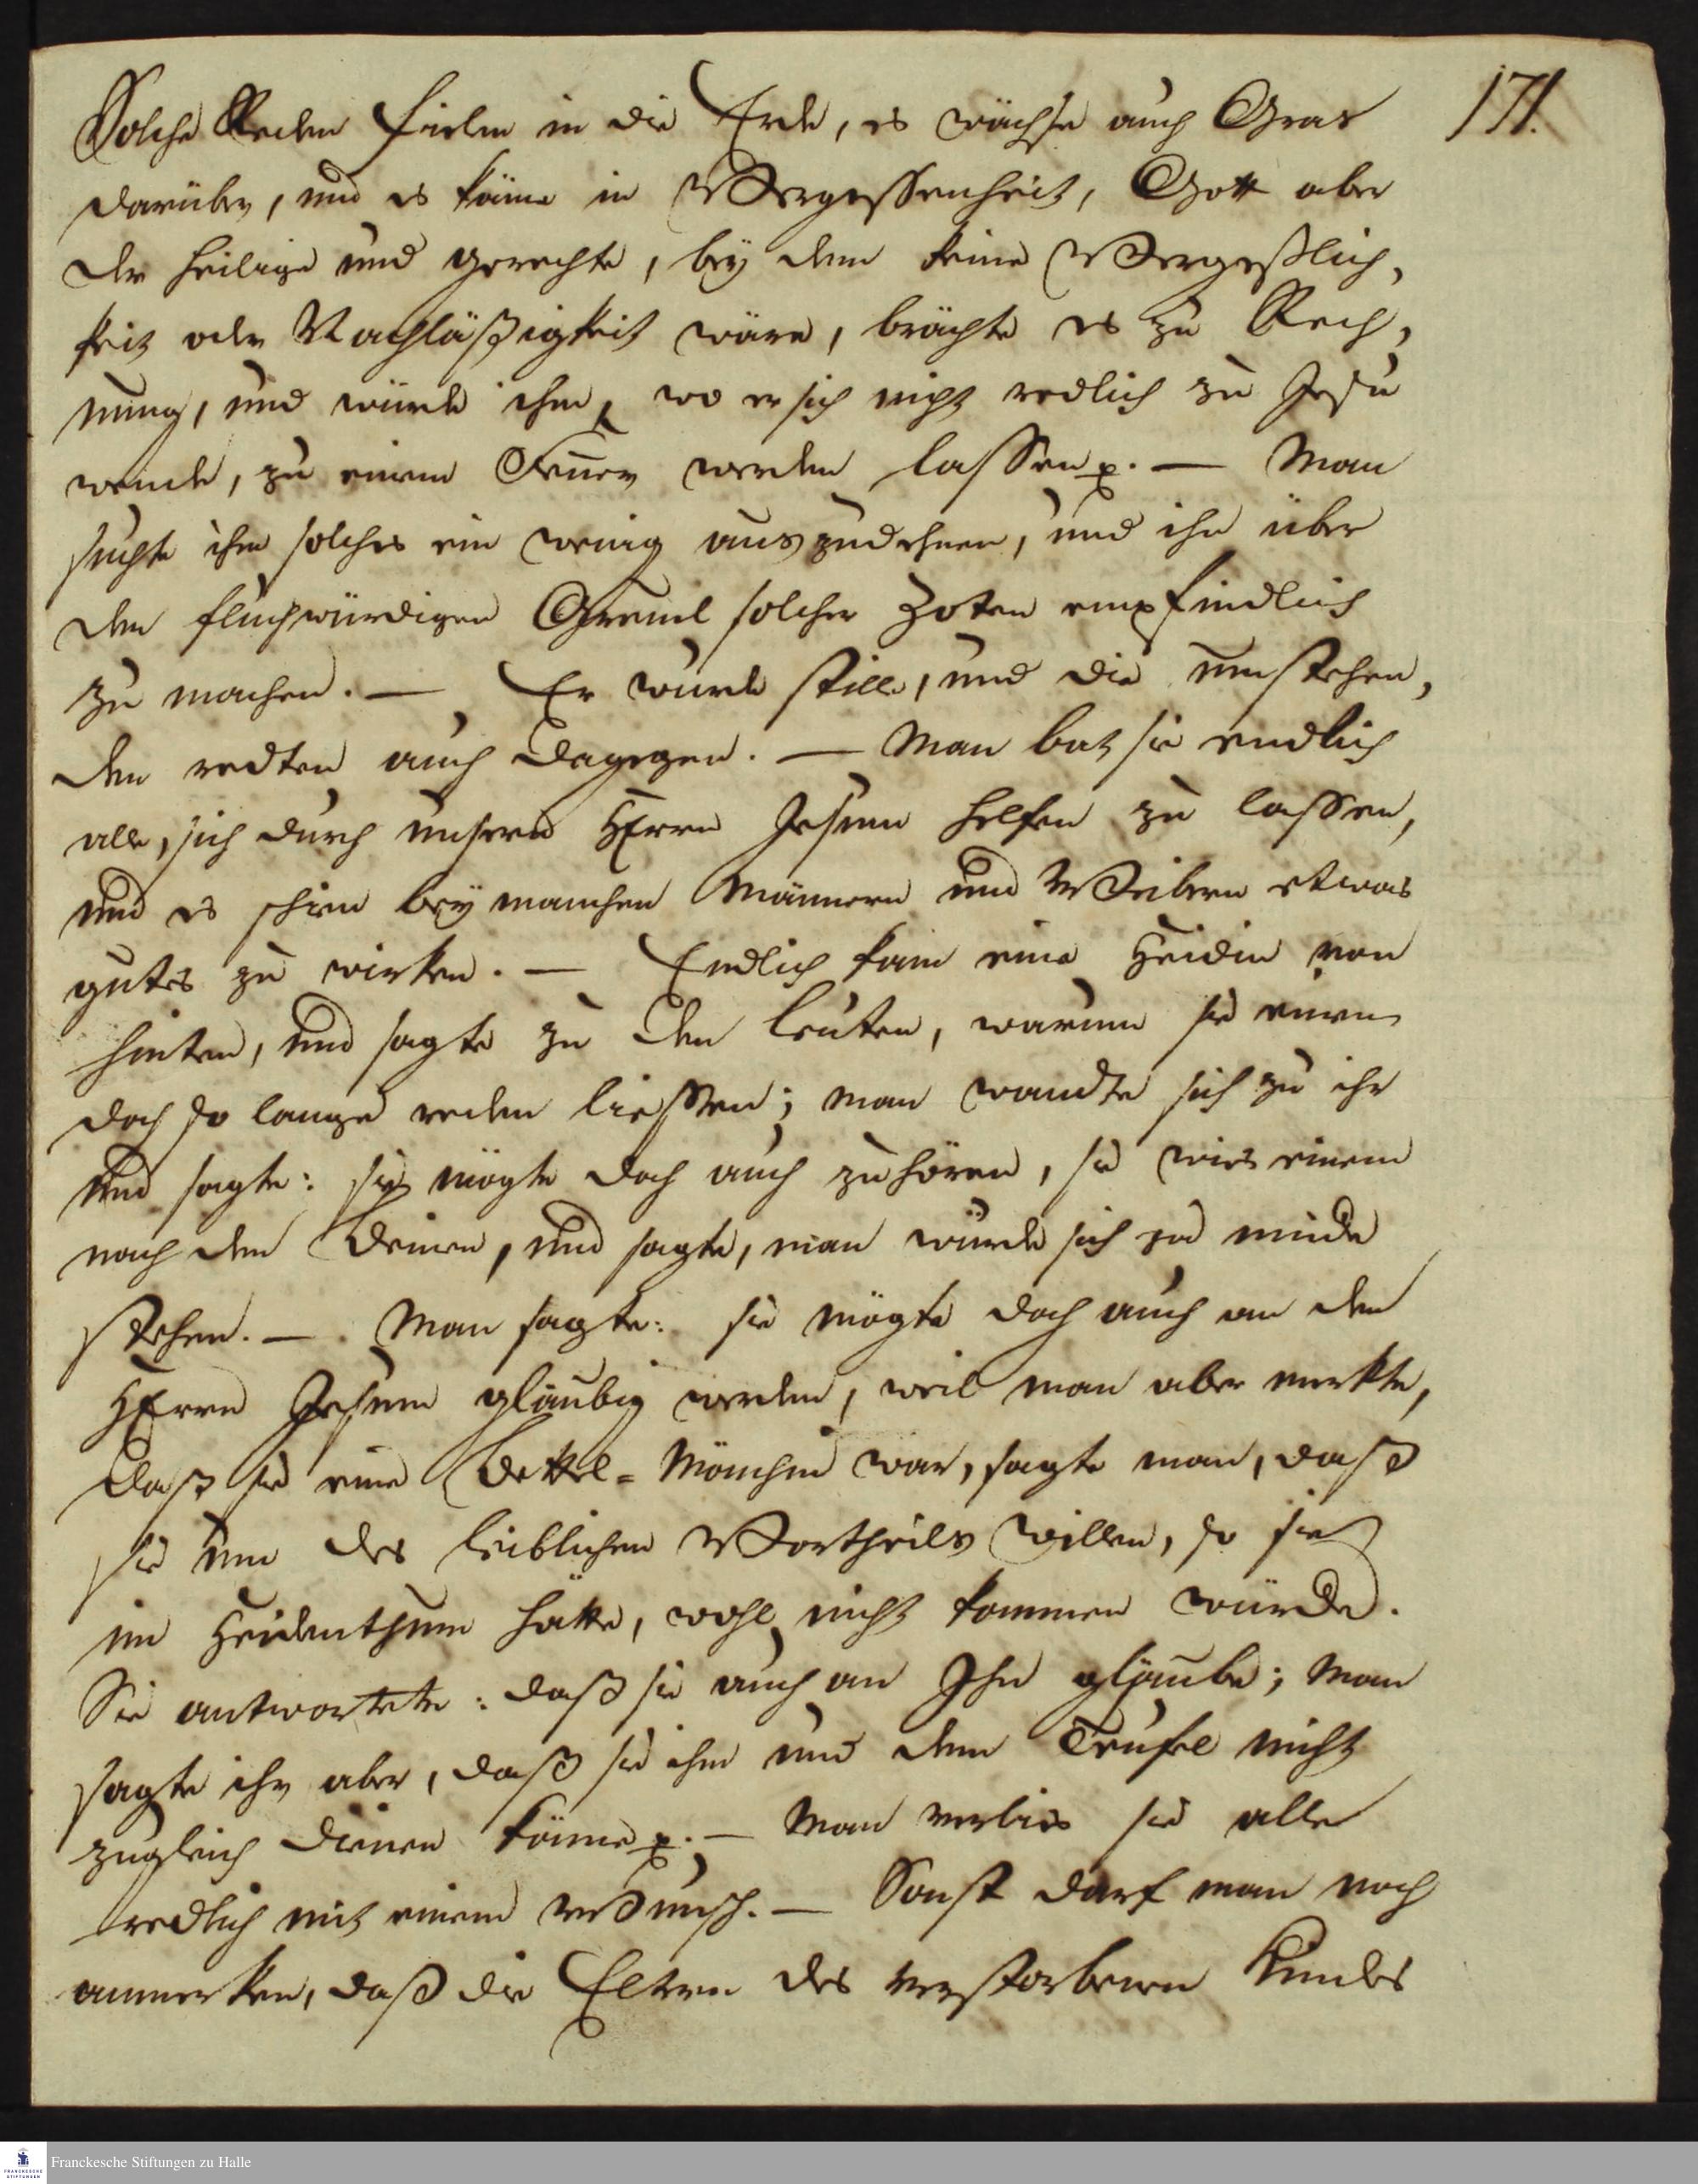 171.
Solche Reden fielen in die Erde, es wächse auch Gras
darüber, und es käme in Vergessenheit, Gott aber
der heilige und gerechte, bey dem keine Vergeßlich,
keit oder Nachläßigkeit wäre, brächte es zu Rech,
nung, und würde ihm, wo er sich nicht redlich zu Jesu
wende, zu einem Feuer werden lassen p. — Man
suchte ihm solches ein wenig auszudehnen, und ihn über
den fluchwürdigen Greuel solcher Zoten empfindlich
zu machen. — Er wurde still, und die umstehen,
den redten auch dagegen. — Man bat sie endlich
alle, sich durch unsern HErrn Jesum helfen zu lassen,
und es schien bey manchen Männern und Weibern etwas
gutes zu wirken. — Endlich kam eine Heidin von
hinten, und sagte zu den Leuten, warum sie einen
doch so lange reden liessen; man wandte sich zu ihr
und sagte: sie mögte doch auch zuhören, sie wies einem
nach den Beinen, und sagte, man würde sich ja müde
stehen. — Man sagte: sie mögte doch auch an den
HErrn Jesum gläubig werden, weil man aber merkte,
daß sie eine Bettel-Mönchin war, sagte man, daß
sie um des leiblichen Vortheils willen, so sie
im Heidenthum hätte, wohl nicht kommen würde.
Sie antwortete: daß sie auch an Ihn gläube; Man
sagte ihr aber, daß sie ihm und dem Teufel nicht
zugleich dienen könne p. — Man verlies sie alle
redlich mit einem Wunsch. — Sonst darf man noch
anmerken, daß die Eltern des verstorbenen Kindes
Franckesche Stiftungen zu Halle
FRANCKESCHE
STIFTUNGEN